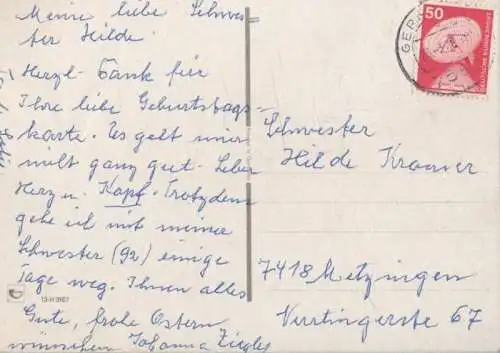 Meine liebe Schwes-
ter Hilde.
Herzl. Dank für
Ihre liebe Geburtstags-
karte. Es geht mir
nicht ganz gut. Leber
Herz u. Kopf. Trotzdem
gehe ich mit meiner
Schwester (92) einige
Tage weg. Ihnen alles
Gute, frohe Ostern
wünschen Johanna Ziegler
13-H 3167
50
DEUTSCHE BUNDESPOST
Schwester
Hilde
7418 Metzingen
Nürtingerste 67